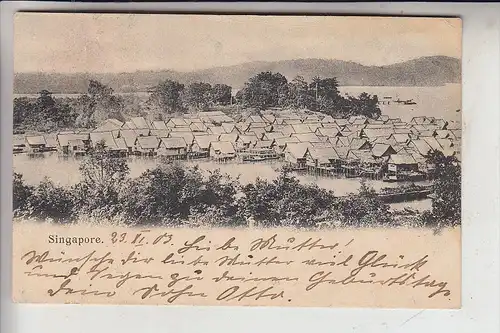 Singapore. 23. XI. 03. Liebe Mutter!
Wünsche dir liebe Mutter viel Glück
und Segen zu deinem Geburtstag
Dein Sohn Otto.